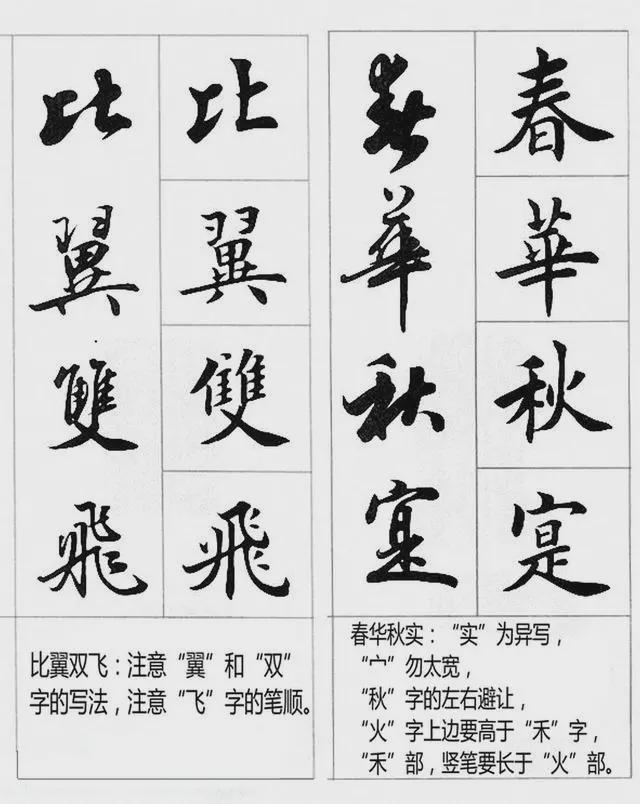 春華秋寔
春華秋寔
春华秋实：“实”为异写，
“宀”勿太宽，
“秋”字的左右避让，
“火”字上边要高于“禾”字，
“禾”部，竖笔要长于“火”部。
比翼雙飛
比翼雙飛
比翼双飞：注意“翼”和“双”
字的写法，注意“飞”字的笔顺。